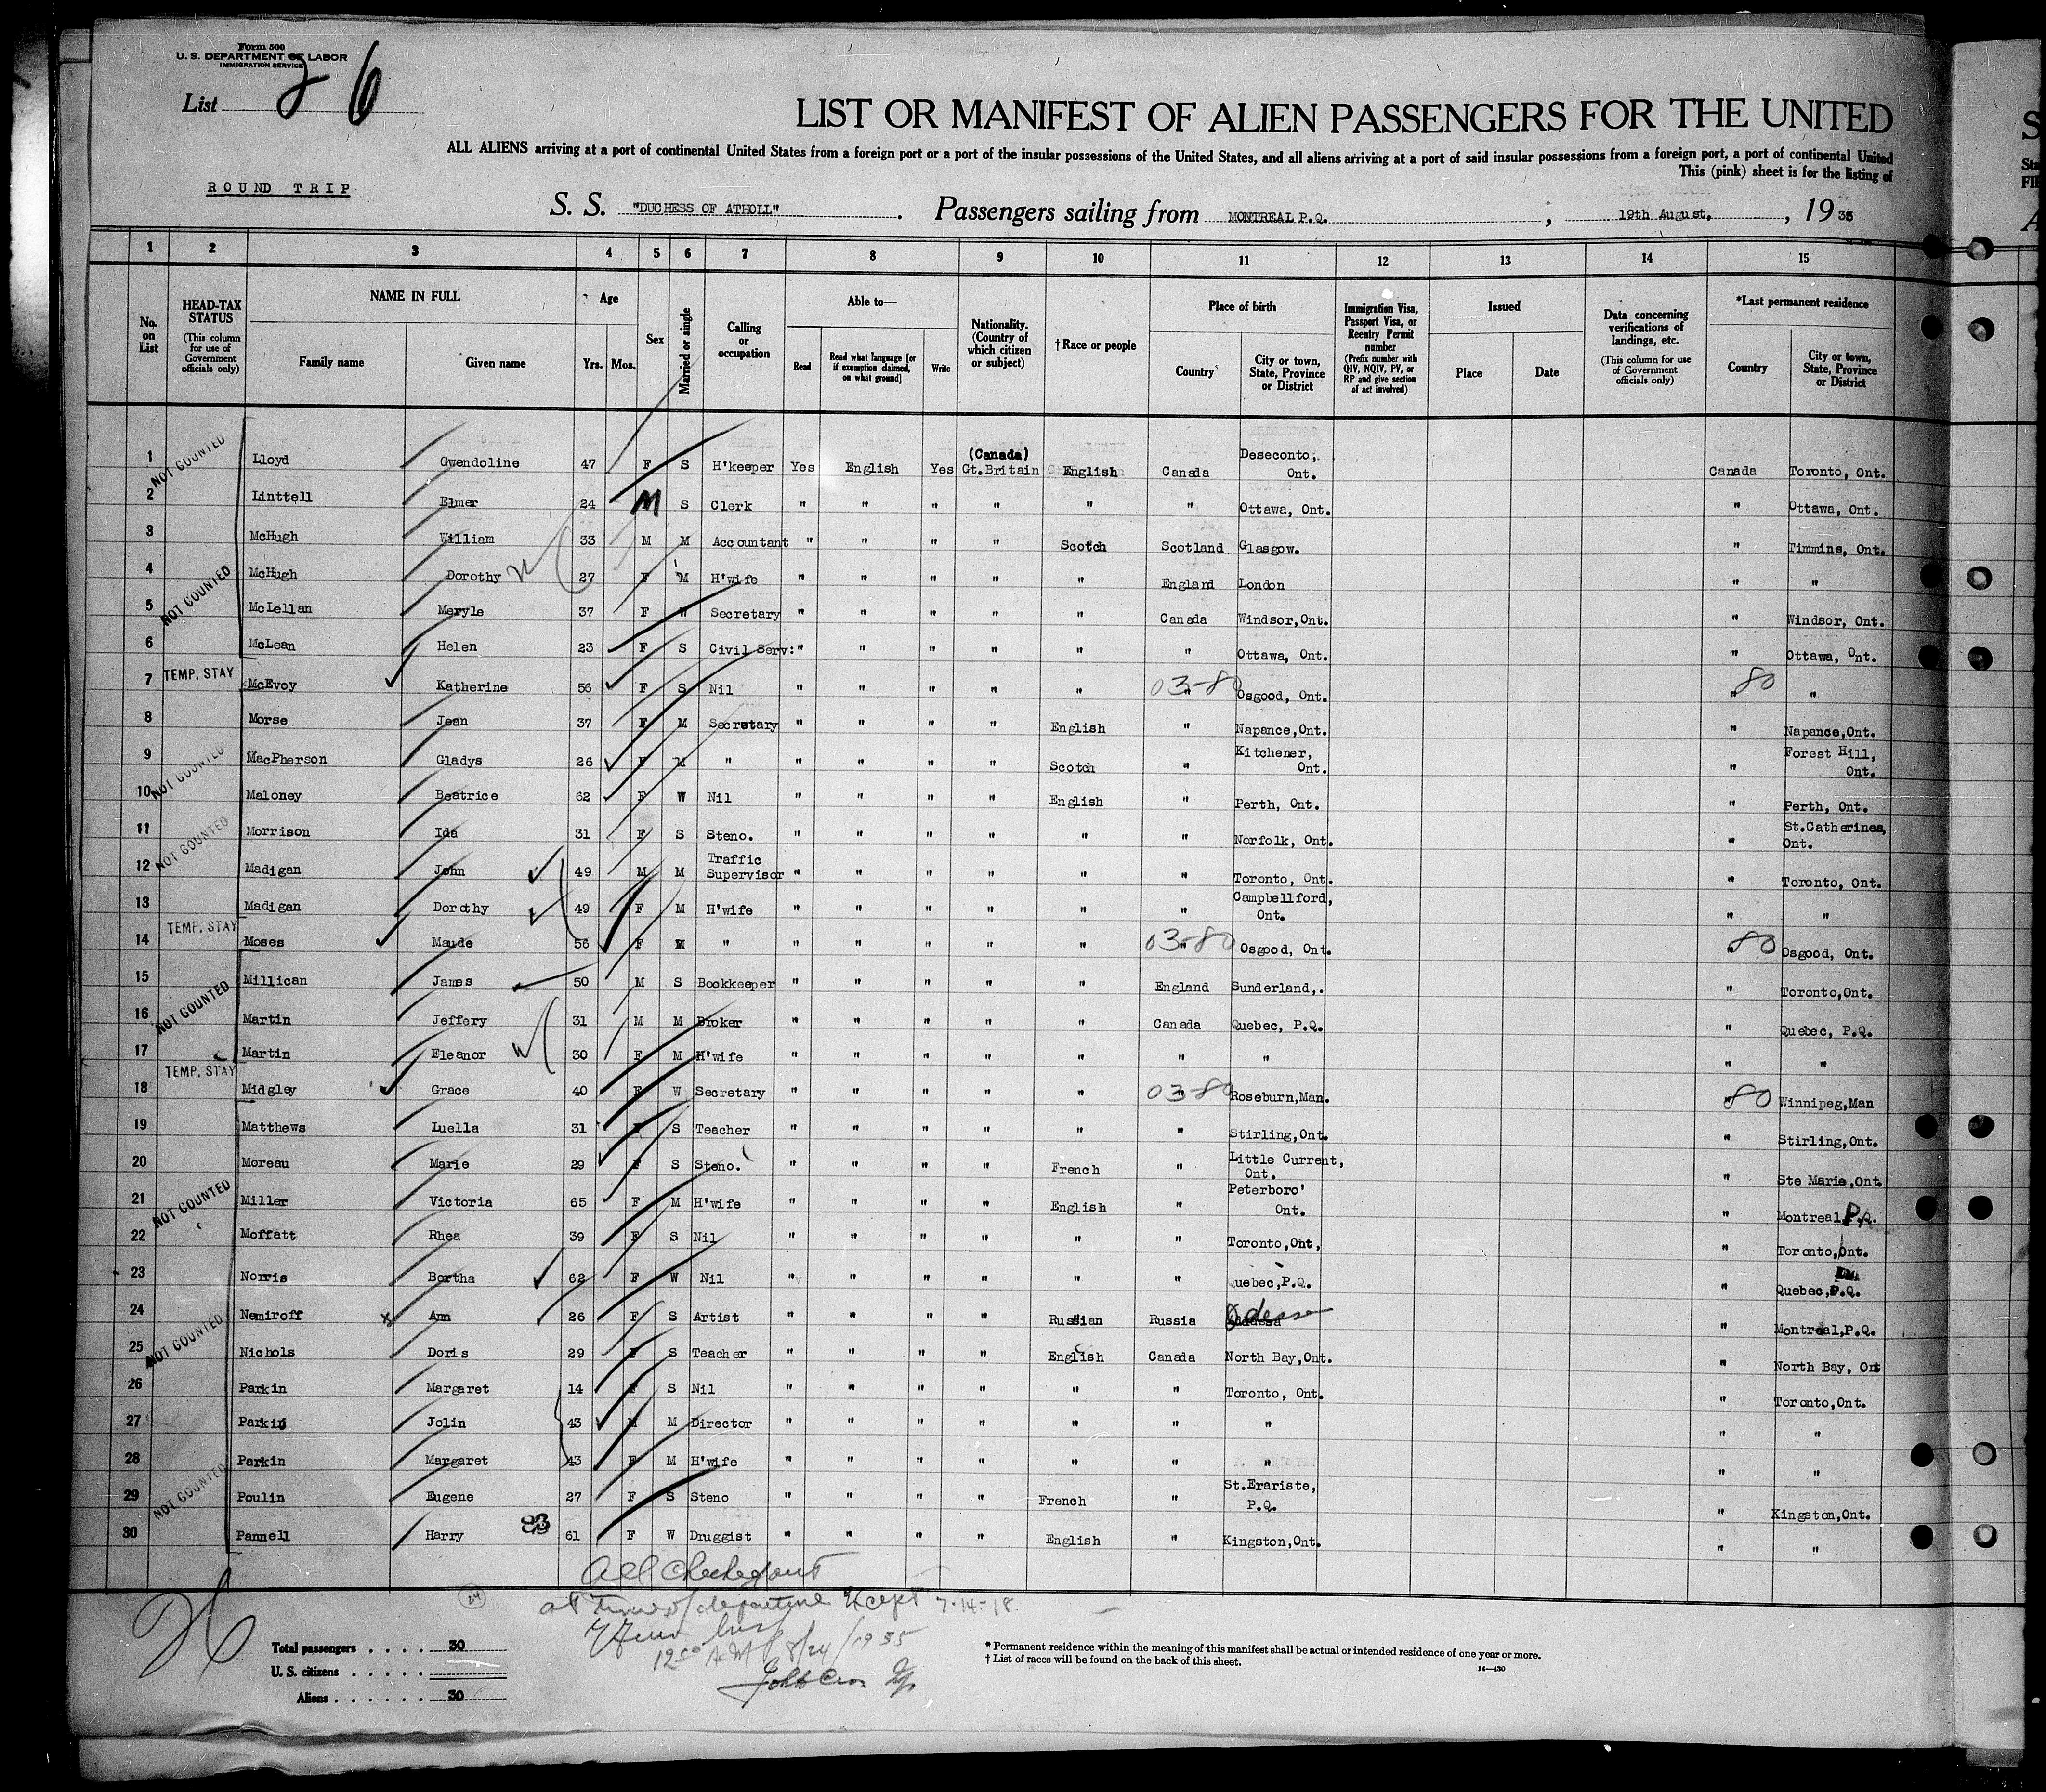 Form 500
U. S. DEPARTMENT OF LABOR
IMMIGRATION SERVICE
List 6
LIST OR MANIFEST OF ALIEN PASSENGERS FOR THE UNITED
ALL ALIENS arriving at a port of continental United States from a foreign port or a port of the insular possessions of the United States, and all aliens arriving at a port of said insular possessions from a foreign port, a port of continental United
This (pink) sheet is for the listing of
ROUND TRIP
S. S. "DUCHESS OF ATHOLL". Passengers sailing from MONTREAL P.Q., 19th August, 1935
1 2 3 4 5 6 7 8 9 10 11 12 13 14 15
No. on List
HEAD-TAX STATUS (This column for use of Government officials only)
NAME IN FULL Family name Given name
Age Yrs. Mos.
Sex
Married or single
Calling or occupation
Able to— Read Read what language [or if exemption claimed, on what ground] Write
Nationality. (Country of which citizen or subject)
† Race or people
Place of birth Country City or town, State, Province or District
Immigration Visa, Passport Visa, or Reentry Permit number (Prefix number with QIV, NQIV, PV, or RP and give section of act involved)
Issued Place Date
Data concerning verifications of landings, etc. (This column for use of Government officials only)
*Last permanent residence Country City or town, State, Province or District
1 NOT COUNTED Lloyd Gwendoline 47 F S H'keeper Yes English Yes (Canada) Gt.Britain English Canada Deseconto, Ont. Canada Toronto, Ont.
2 Linttell Elmer 24 M S Clerk " " " " " " Ottawa, Ont. " Ottawa, Ont.
3 McHugh William 33 M M Accountant " " " " Scotch Scotland Glasgow. " Timmins, Ont.
4 McHugh Dorothy 27 F M H'wife " " " " " England London " "
5 NOT COUNTED McLellan Meryle 37 F W Secretary " " " " " Canada Windsor,Ont. " Windsor, Ont.
6 McLean Helen 23 F S Civil Serv: " " " " " " Ottawa, Ont. " Ottawa, Ont.
7 TEMP. STAY McEvoy Katherine 56 F S Nil " " " " " 03-80 " Osgood, Ont. 80 " "
8 Morse Jean 37 F M Secretary " " " " English " Napance,Ont. " Napance,Ont.
9 NOT COUNTED MacPherson Gladys 26 F M " " " " " Scotch " Kitchener, Ont. " Forest Hill, Ont.
10 Maloney Beatrice 62 F W Nil " " " " English " Perth, Ont. " Perth, Ont.
11 NOT COUNTED Morrison Ida 31 F S Steno. " " " " " " Norfolk, Ont. " St.Catherines, Ont.
12 Madigan John 49 M M Traffic Supervisor " " " " " " Toronto, Ont. " Toronto, Ont.
13 Madigan Dorothy 49 F M H'wife " " " " " " Campbellford, Ont. " "
14 TEMP. STAY Moses Maude 56 F M " " " " " " 03-80 " Osgood, Ont. 80 " Osgood, Ont.
15 NOT COUNTED Millican James 50 M S Bookkeeper " " " " " England Sunderland,. " Toronto,Ont.
16 Martin Jeffery 31 M M Broker " " " " " Canada Quebec, P.Q. " Quebec, P.Q.
17 Martin Eleanor 30 F M H'wife " " " " " " " " "
18 TEMP. STAY Midgley Grace 40 F W Secretary " " " " " 03-80 " Roseburn,Man. 80 " Winnipeg,Man
19 Matthews Luella 31 F S Teacher " " " " " " Stirling,Ont. " Stirling,Ont.
20 Moreau Marie 29 F S Steno. " " " " French " Little Current, Ont. " Ste Marie,Ont
21 NOT COUNTED Miller Victoria 65 F M H'wife " " " " English " Peterboro' Ont. " Montreal P.Q.
22 Moffatt Rhea 39 F S Nil " " " " " " Toronto,Ont, " Toronto,Ont.
23 Norris Bertha 62 F W Nil " " " " " " Quebec,P.Q. " Quebec,P.Q.
24 NOT COUNTED Nemiroff x Ann 26 F S Artist " " " " Russian Russia Odessa " Montreal,P.Q.
25 Nichols Doris 29 F S Teacher " " " " English Canada North Bay,Ont. " North Bay, Ont
26 Parkin Margaret 14 F S Nil " " " " " " Toronto, Ont. " Toronto,Ont.
27 Parkin Jolin 43 M M Director " " " " " " " " "
28 Parkin Margaret 43 F M H'wife " " " " " " " " "
29 NOT COUNTED Poulin Eugene 27 F S Steno " " " " French " St.Erariste, P.Q. " Kingston,Ont.
30 Pannell Harry 23 61 F W Druggist " " " " English " Kingston,Ont. " "
All checked out
at time of departure except 7-14-18
24
12 00 AM 8/24/1935
Total passengers . . . . 30
U. S. citizens . . . . .
Aliens . . . . . . 30
* Permanent residence within the meaning of this manifest shall be actual or intended residence of one year or more.
† List of races will be found on the back of this sheet.
14—430